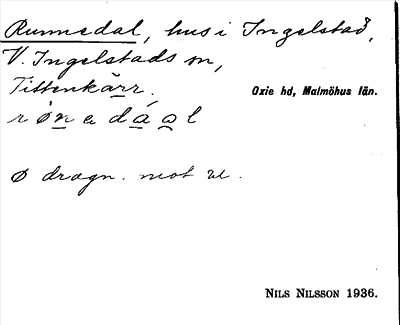 Runnedal, hus i Ingelstad,
V. Ingelstads sn,
Tittenkärr.
Oxie hd, Malmöhus län.
r ø n e d á a l
Ø dragn. mot œ.
NILS NILSSON 1936.